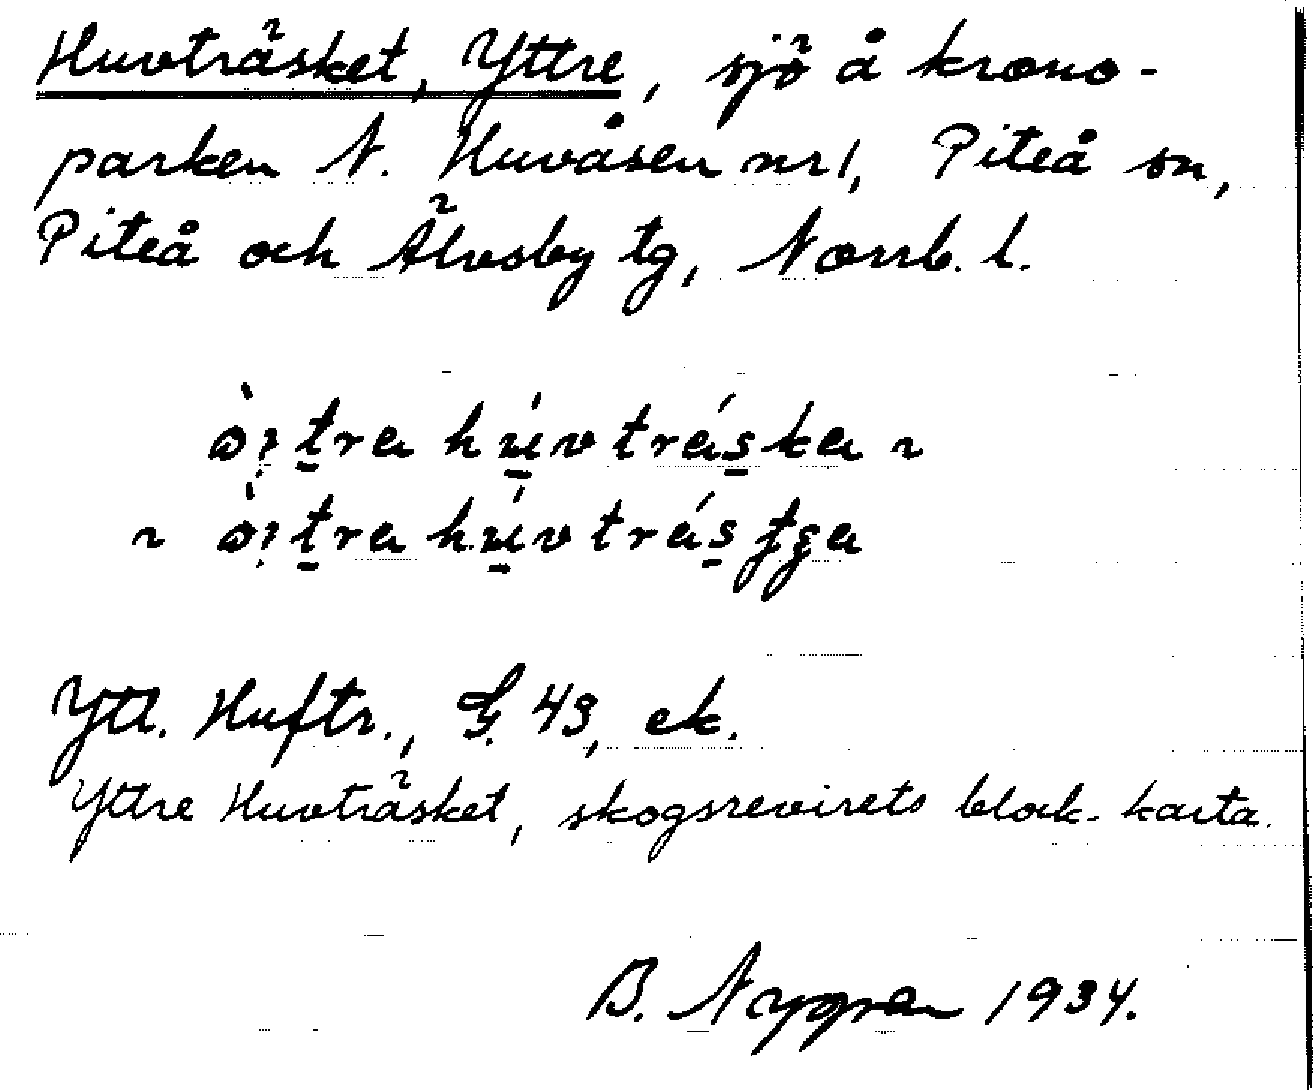 Huvträsket, Yttre, sjö å krono-
parken N. Huvåsen nr 1, Piteå sn,
Piteå och Älvsby tg, Norrb. l.
tra húvtráska ~
~ tra húvtrás
Ytt. Huftr., G. 43, ek.
Yttre Huvträsket, skogsrevirets block-karta.
B. Nygren 1934.